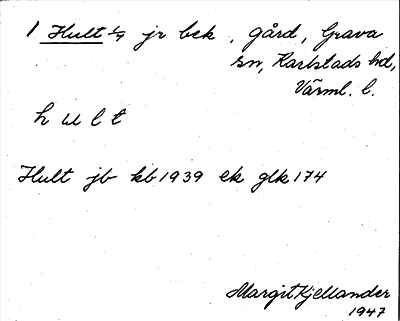 1 Hult 1/7 jr bek, gård, Grava
sn, Karlstads hd,
Värml. l.
hult
Hult jb kb1939 ek glk174
Margit Kjellander
1947